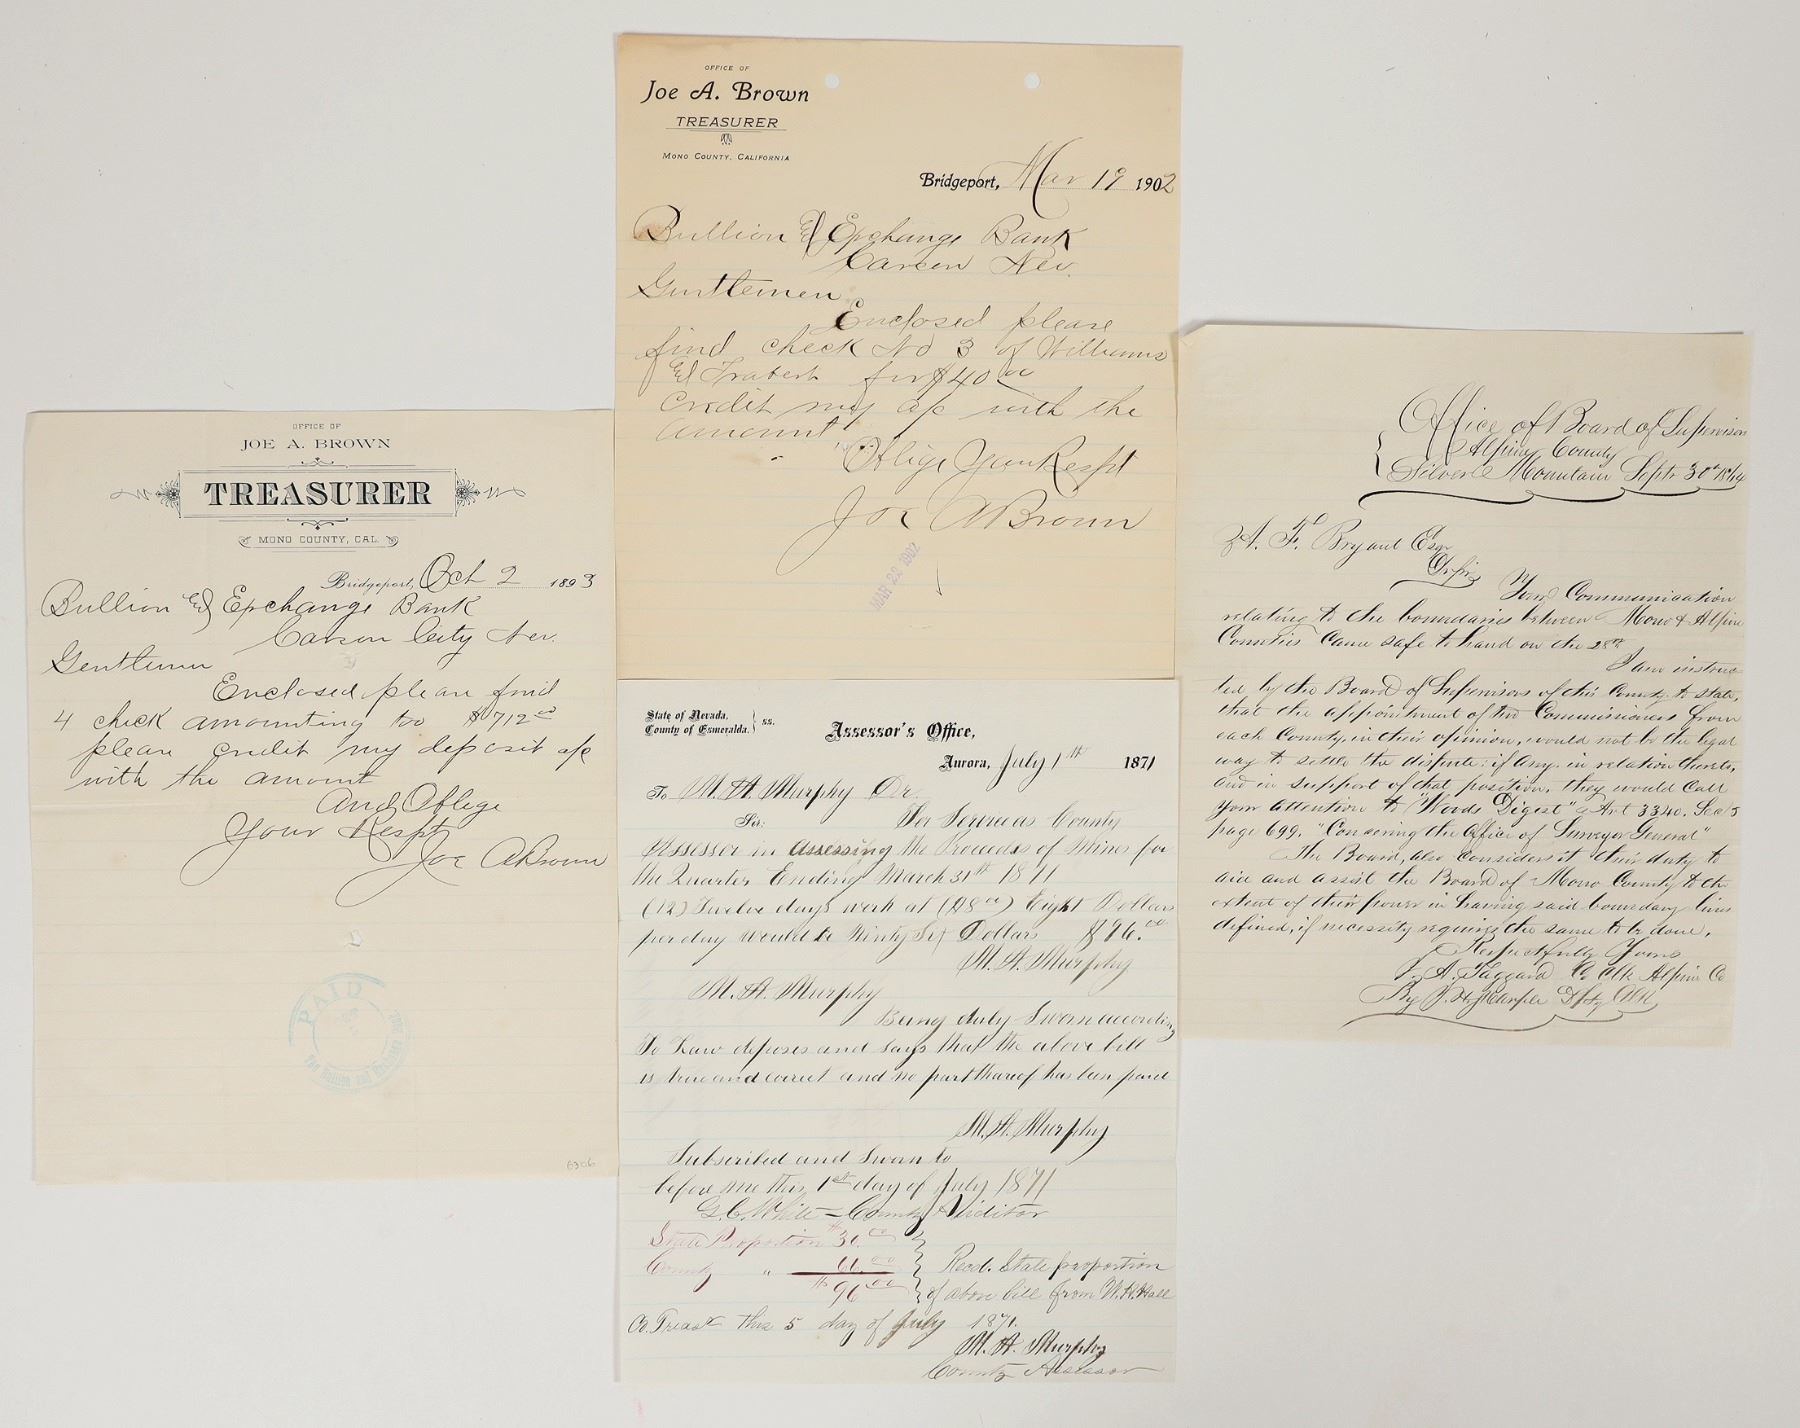 OFFICE OF
JOE A. BROWN
TREASURER
MONO COUNTY, CAL.
Bridgeport, Oct 2 1893
Bullion & Exchange Bank
Carson City Nev.
Gentlemen
Enclosed please find
4 check amounting to $712.00
please credit my deposit a/c
with the amount
And Oblige
Your Respt
Joe A Brown
PAID
6306
OFFICE OF
Joe A. Brown
TREASURER
MONO COUNTY, CALIFORNIA
Bridgeport, Mar 19 1902
Bullion & Exchange Bank
Carson Nev.
Gentlemen
Enclosed please
find check No 3 of Williams
& Trabert for $40.00
credit my a/c with the
amount
Oblige Your Respt
Joe A Brown
MAR 22 1902
State of Nevada,
County of Esmeralda. } ss.
Assessor's Office,
Aurora, July 1th 1871
To M. A. Murphy Dr.
Sir: For Services County
Assessor in Assessing the Proceeds of Mines for
the Quarter Ending March 31th 1871
(12) Twelve days work at ($8.00) Eight Dollars
per day would be Ninty Six Dollars $96.00
M. A. Murphy
M. A. Murphy
Being duly Sworn according
To Law deposes and says that the above bill
is true and correct and no part thereof has been paid
M. A. Murphy
Subscribed and Sworn to
before me this 1st day of July 1871
G. C. White - County Auditor
State Proportion $30.00
County " 66.00
$96.00
Recd. State proportion
of above bill from W. H. Hall
Co. Treasr this 5 day of July 1871.
M. A. Murphy
County Assessor
Office of Board of Supervisors
Alpine County
Silver Mountain Sept. 30th 1864
A. F. Bryant Esqr
Your Communication
relating to the boundaries between Mono & Alpine
Counties Came safe to hand on the 28th
I am instruc
ted by the Board of Supervisors of this County to state,
that the appointment of two Commissioners from
each County, in their opinion, would not be the legal
way to settle the dispute: if any. in relation thereto,
and in support of that position, they would call
your attention to "Woods Digest" Art 3340. Sec 5
page 699. "Concerning the office of Surveyor General"
The Board, also Considers it their duty to
aid and assist the Board of Mono County to the
extent of their power in having said boundary lines
defined, if necessity requires the same to be done.
Respectfully Yours
A. Taggard Co Clk Alpine Co
By J. H. Harper Dpty Clk